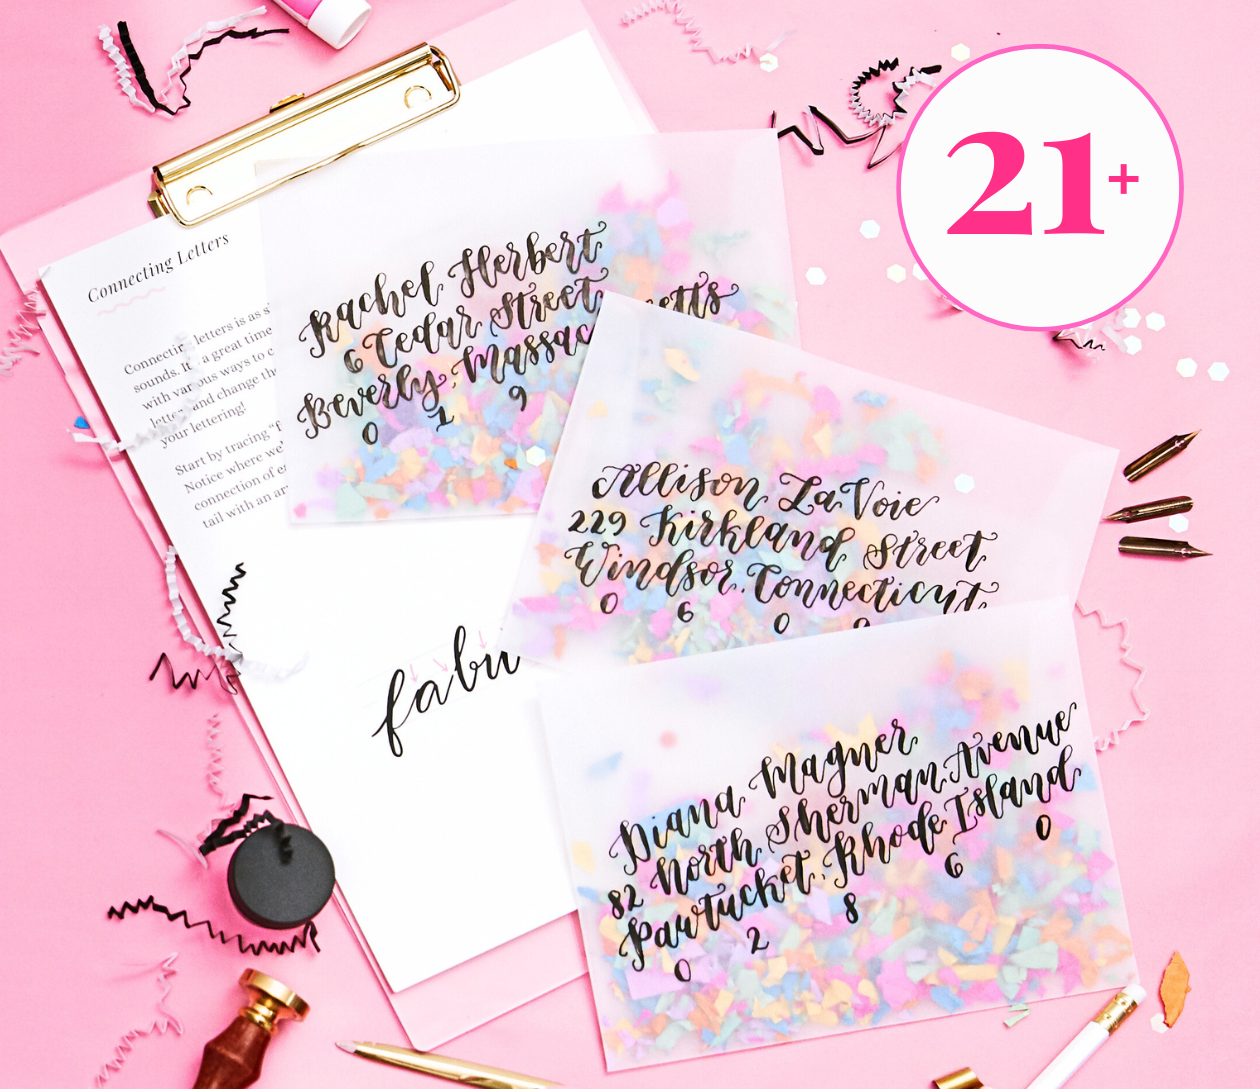 21+
Connecting Letters
Connecting letters is as s
sounds. It' a great time
with various ways to c
letter and change the
your lettering!
Start by tracing "f
Notice where we'
connection of e
tail with an ar
fabu
Rachel Herbert
6 Cedar Street
Beverly, Massac etts
0 1 9
Allison LaVoie
229 Kirkland Street
Windsor, Connecticut
0 6 0
Diana Magner
82 North Sherman Avenue
Pawtucket, Rhode Island
0 2 8 6 0